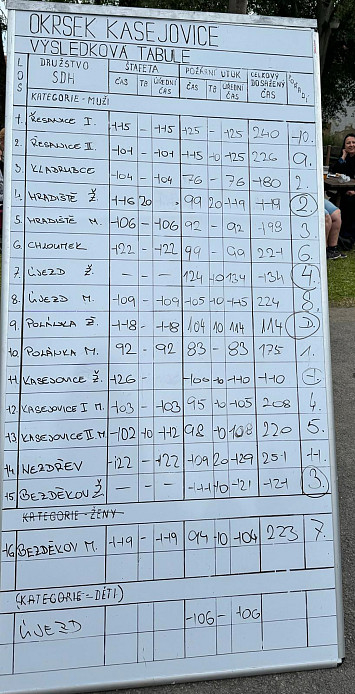 OKRSEK KASEJOVICE
VÝSLEDKOVÁ TABULE
LOS DRUŽSTVO SDH ŠTAFETA ČAS TB ÚŘEDNÍ ČAS POŽÁRNÍ ÚTOK ČAS TB ÚŘEDNÍ ČAS CELKOVÝ DOSAŽENÝ ČAS POŘADÍ
KATEGORIE - MUŽI
1. ŘESANICE I. 115 - 115 125 - 125 240 10.
2. ŘESANICE II. 101 - 101 115 10 125 226 9.
3. KLADRUBCE 104 - 104 76 - 76 180 2.
4. HRADIŠTĚ Ž. 116 20 99 20 119 119 2
5. HRADIŠTĚ M. 106 - 106 92 - 92 198 3
6. CHLOUMEK 122 - 122 99 99 221 6.
7. ÚJEZD Ž. - - 124 10 134 134 4.
8. ÚJEZD M. 109 - 109 105 10 115 224 8.
9. POLÁNKA Ž. 118 - 118 104 10 114 114
10 POLÁNKA M. 92 - 92 83 - 83 175 1.
11 KASEJOVICE Ž. 126 - 100 10 110 110 1
12. KASEJOVICE I M. 103 - 103 95 10 105 208 4.
13 KASEJOVICE II. M. 102 10 112 98 10 108 220 5.
14 NEZDŘEV 122 - 122 109 20 129 251 11.
15 BEZDĚKOV Ž - 111 10 121 121 3.
KATEGORIE - ŽENY
16 BEZDĚKOV M. 119 - 119 94 10 104 223 7.
(KATEGORIE - DĚTI)
ÚJEZD 106 - 106